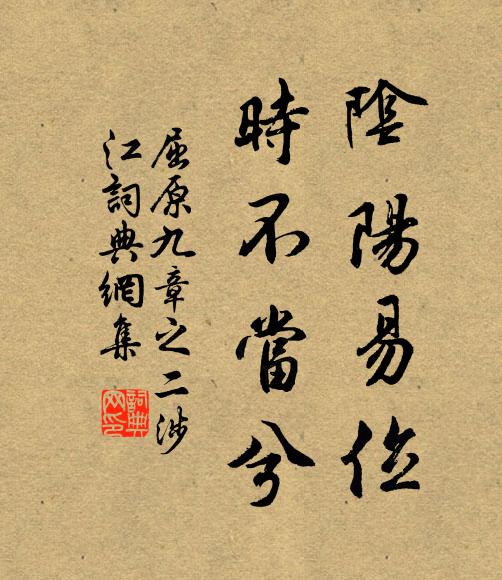 陰陽易位
時不當兮
屈原九章之二涉
江詞典網集
詞典
网印